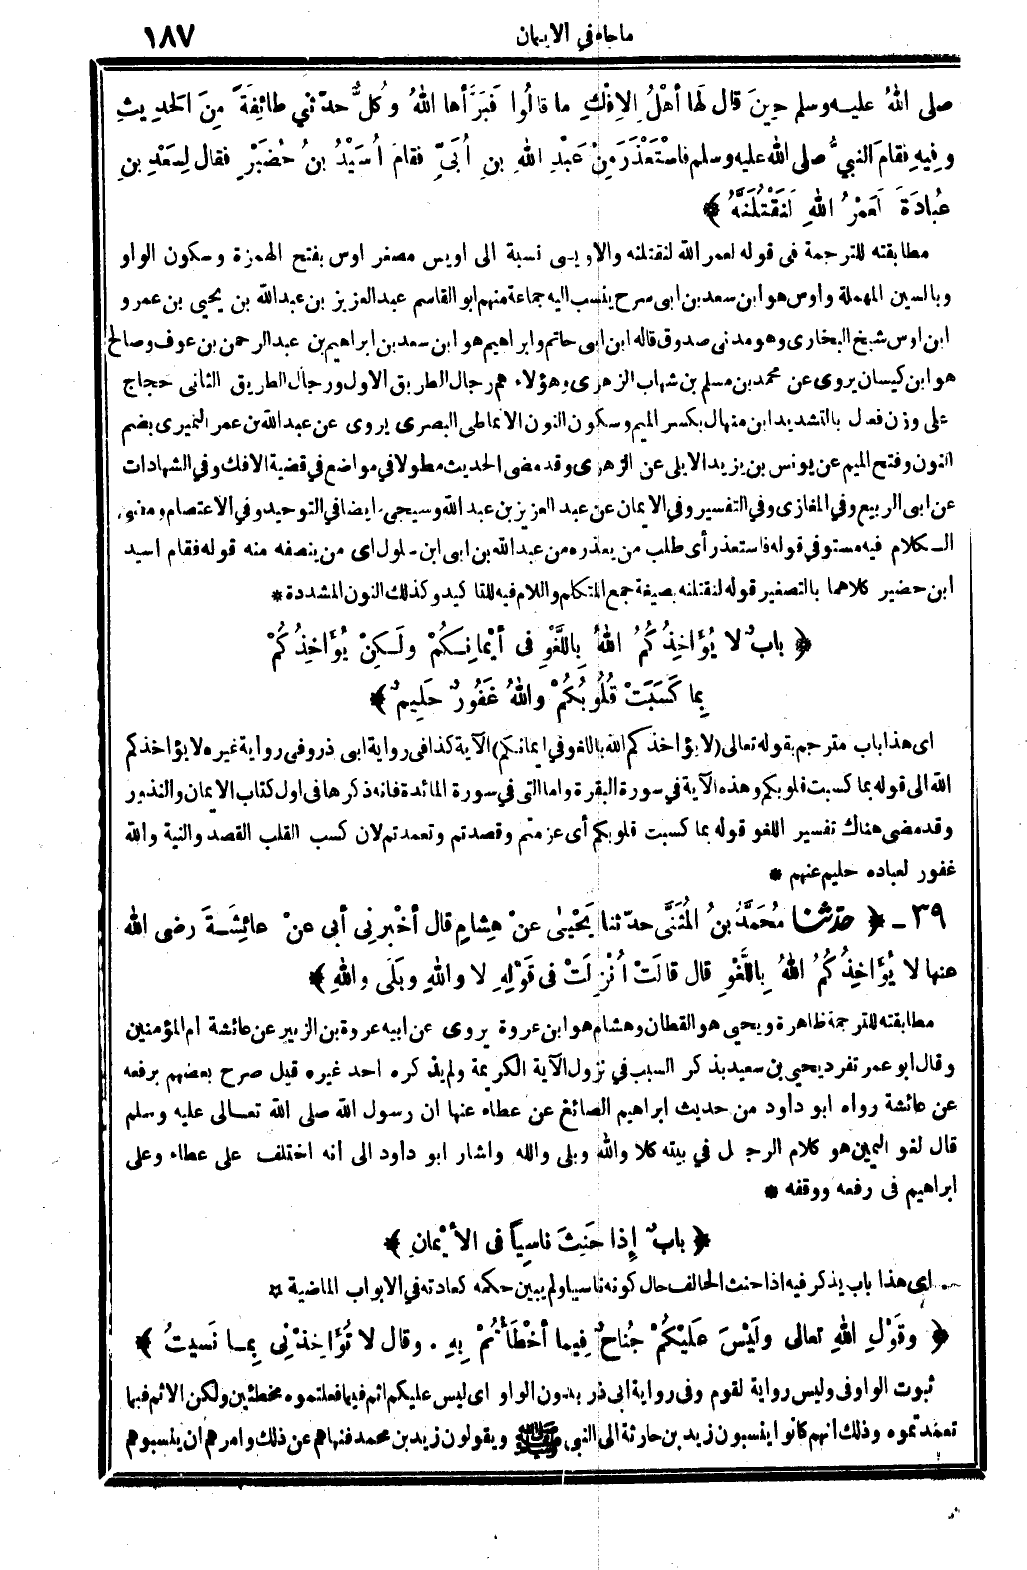 ماجاء في الايمان ١٨٧
صلى اللهُ عليه وسلم حِينَ قال لَها أهْلُ الإفْكِ ما قالُوا فَبَرَّأها اللهُ وكُلٌّ حدّثني طائِفَةً مِنَ الحَدِيثِ
وفِيهِ فقامَ النبيُّ صلى الله عليه وسلم فاسْتَعْذَرَ مِنْ عَبْدِ اللهِ بنِ أُبَيٍّ فقامَ أُسَيْدُ بنُ حُضَيْرٍ فقال لِسَعْدِ بنِ
عُبادَةَ لَعَمْرُ اللهِ لَنَقْتُلَنَّهُ ﴾
مطابقته للترجمة فى قوله لعمر الله لنقتلنه والاويسى نسبة الى اويس مصغر اوس بفتح الهمزة وسكون الواو
وبالسين المهملة واوس هو ابن سعد بن ابى سرح ينسب اليه جماعة منهم ابو القاسم عبد العزيز بن عبد الله بن يحيى بن عمرو
ابن اوس شيخ البخارى وهو مدنى صدوق قاله ابن ابى حاتم وابراهيم هو ابن سعد بن ابراهيم بن عبد الرحمن بن عوف وصالح
هو ابن كيسان يروى عن محمد بن مسلم بن شهاب الزهرى وهؤلاء هم رجال الطريق الاول ورجال الطريق الثانى حجاج
على وزن فعال بالتشديد ابن منهال بكسر الميم وسكون النون الانماطى البصرى يروى عن عبد الله بن عمر النميرى بضم
النون وفتح الميم عن يونس بن يزيد الايلى عن الزهرى وقد مضى الحديث مطولا في مواضع في قضية الافك وفي الشهادات
عن ابى الربيع وفي المغازى وفي التفسير وفي الايمان عن عبد العزيز بن عبد الله وسيجىء ايضا في التوحيد وفي الاعتصام ومضى
الكلام فيه مستوفي قوله فاستعذر أى طلب من يعذره من عبد الله بن ابى ابن سلول اى من ينصفه منه قوله فقام اسيد
ابن حضير كلاهما بالتصغير قوله لنقتلنه بصيغة جمع المتكلم واللام فيه للتاكيد وكذلك النون المشددة *
﴿ بابٌ لا يُؤَاخِذُكُمُ اللهُ بِاللَّغْوِ فى أيْمانِكُمْ ولَكِنْ يُؤَاخِذُكُمْ
بِما كَسَبَتْ قُلُوبُكُمْ واللهُ غَفُورٌ حَلِيمٌ ﴾
اى هذا باب مترجم بقوله تعالى (لا يؤاخذكم الله باللغو في ايمانكم) الآية كذا فى رواية ابى ذر وفى رواية غيره لا يؤاخذكم
الله الى قوله بما كسبت قلوبكم وهذه الآية في سورة البقرة واما التى في سورة المائدة فانه ذكرها فى اول كتاب الايمان والنذور
وقد مضى هناك تفسير اللغو قوله بما كسبت قلوبكم أى عزمتم وقصدتم وتعمدتم لان كسب القلب القصد والنية والله
غفور لعباده حليم عنهم *
٣٩ ـ ﴿ حدّثنا مُحَمَّدُ بنُ المُثَنَّى حدّثنا يَحْيَىٰ عنْ هِشامٍ قال أخْبرنِي أبى عنْ عائِشَةَ رضى الله
عنها لا يُؤَاخِذُكُمُ اللهُ بِاللَّغْوِ قال قالَتْ أُنْزِلَتْ فى قَوْلِهِ لا واللهِ وبَلَى واللهِ ﴾
مطابقته للترجمة ظاهرة ويحيى هو القطان وهشام هو ابن عروة يروى عن ابيه عروة بن الزبير عن عائشة ام المؤمنين
وقال ابو عمر تفرد يحيى بن سعيد بذكر السبب في نزول الآية الكريمة ولم يذكره احد غيره قيل صرح بعضهم برفعه
عن عائشة رواه ابو داود من حديث ابراهيم الصائغ عن عطاء عنها ان رسول الله صلى الله تعالى عليه وسلم
قال لغو اليمين هو كلام الرجل في بيته كلا والله وبلى والله واشار ابو داود الى انه اختلف على عطاء وعلى
ابراهيم فى رفعه ووقفه *
﴿ بابٌ إذا حَنِثَ ناسِياً فى الأيْمانِ ﴾
اى هذا باب يذكر فيه اذا حنث الحالف حال كونه ناسيا ولم يبين حكمه كعادته في الابواب الماضية *
﴿ وقَوْلِ اللهِ تعالى ولَيْسَ عَلَيْكُمْ جُناحٌ فِيما أخْطَأْتُمْ بِهِ . وقال لا تُؤَاخِذْنِي بِما نَسِيتُ ﴾
ثبوت الواو فى وليس رواية لقوم وفى رواية ابى ذر بدون الواو اى ليس عليكم اثم فيما فعلتموه مخطئين ولكن الاثم فيما
تعمدتموه وذلك انهم كانوا ينسبون زيد بن حارثة الى النبى ﷺ ويقولون زيد بن محمد فنهاهم عن ذلك وامرهم ان ينسبوهم